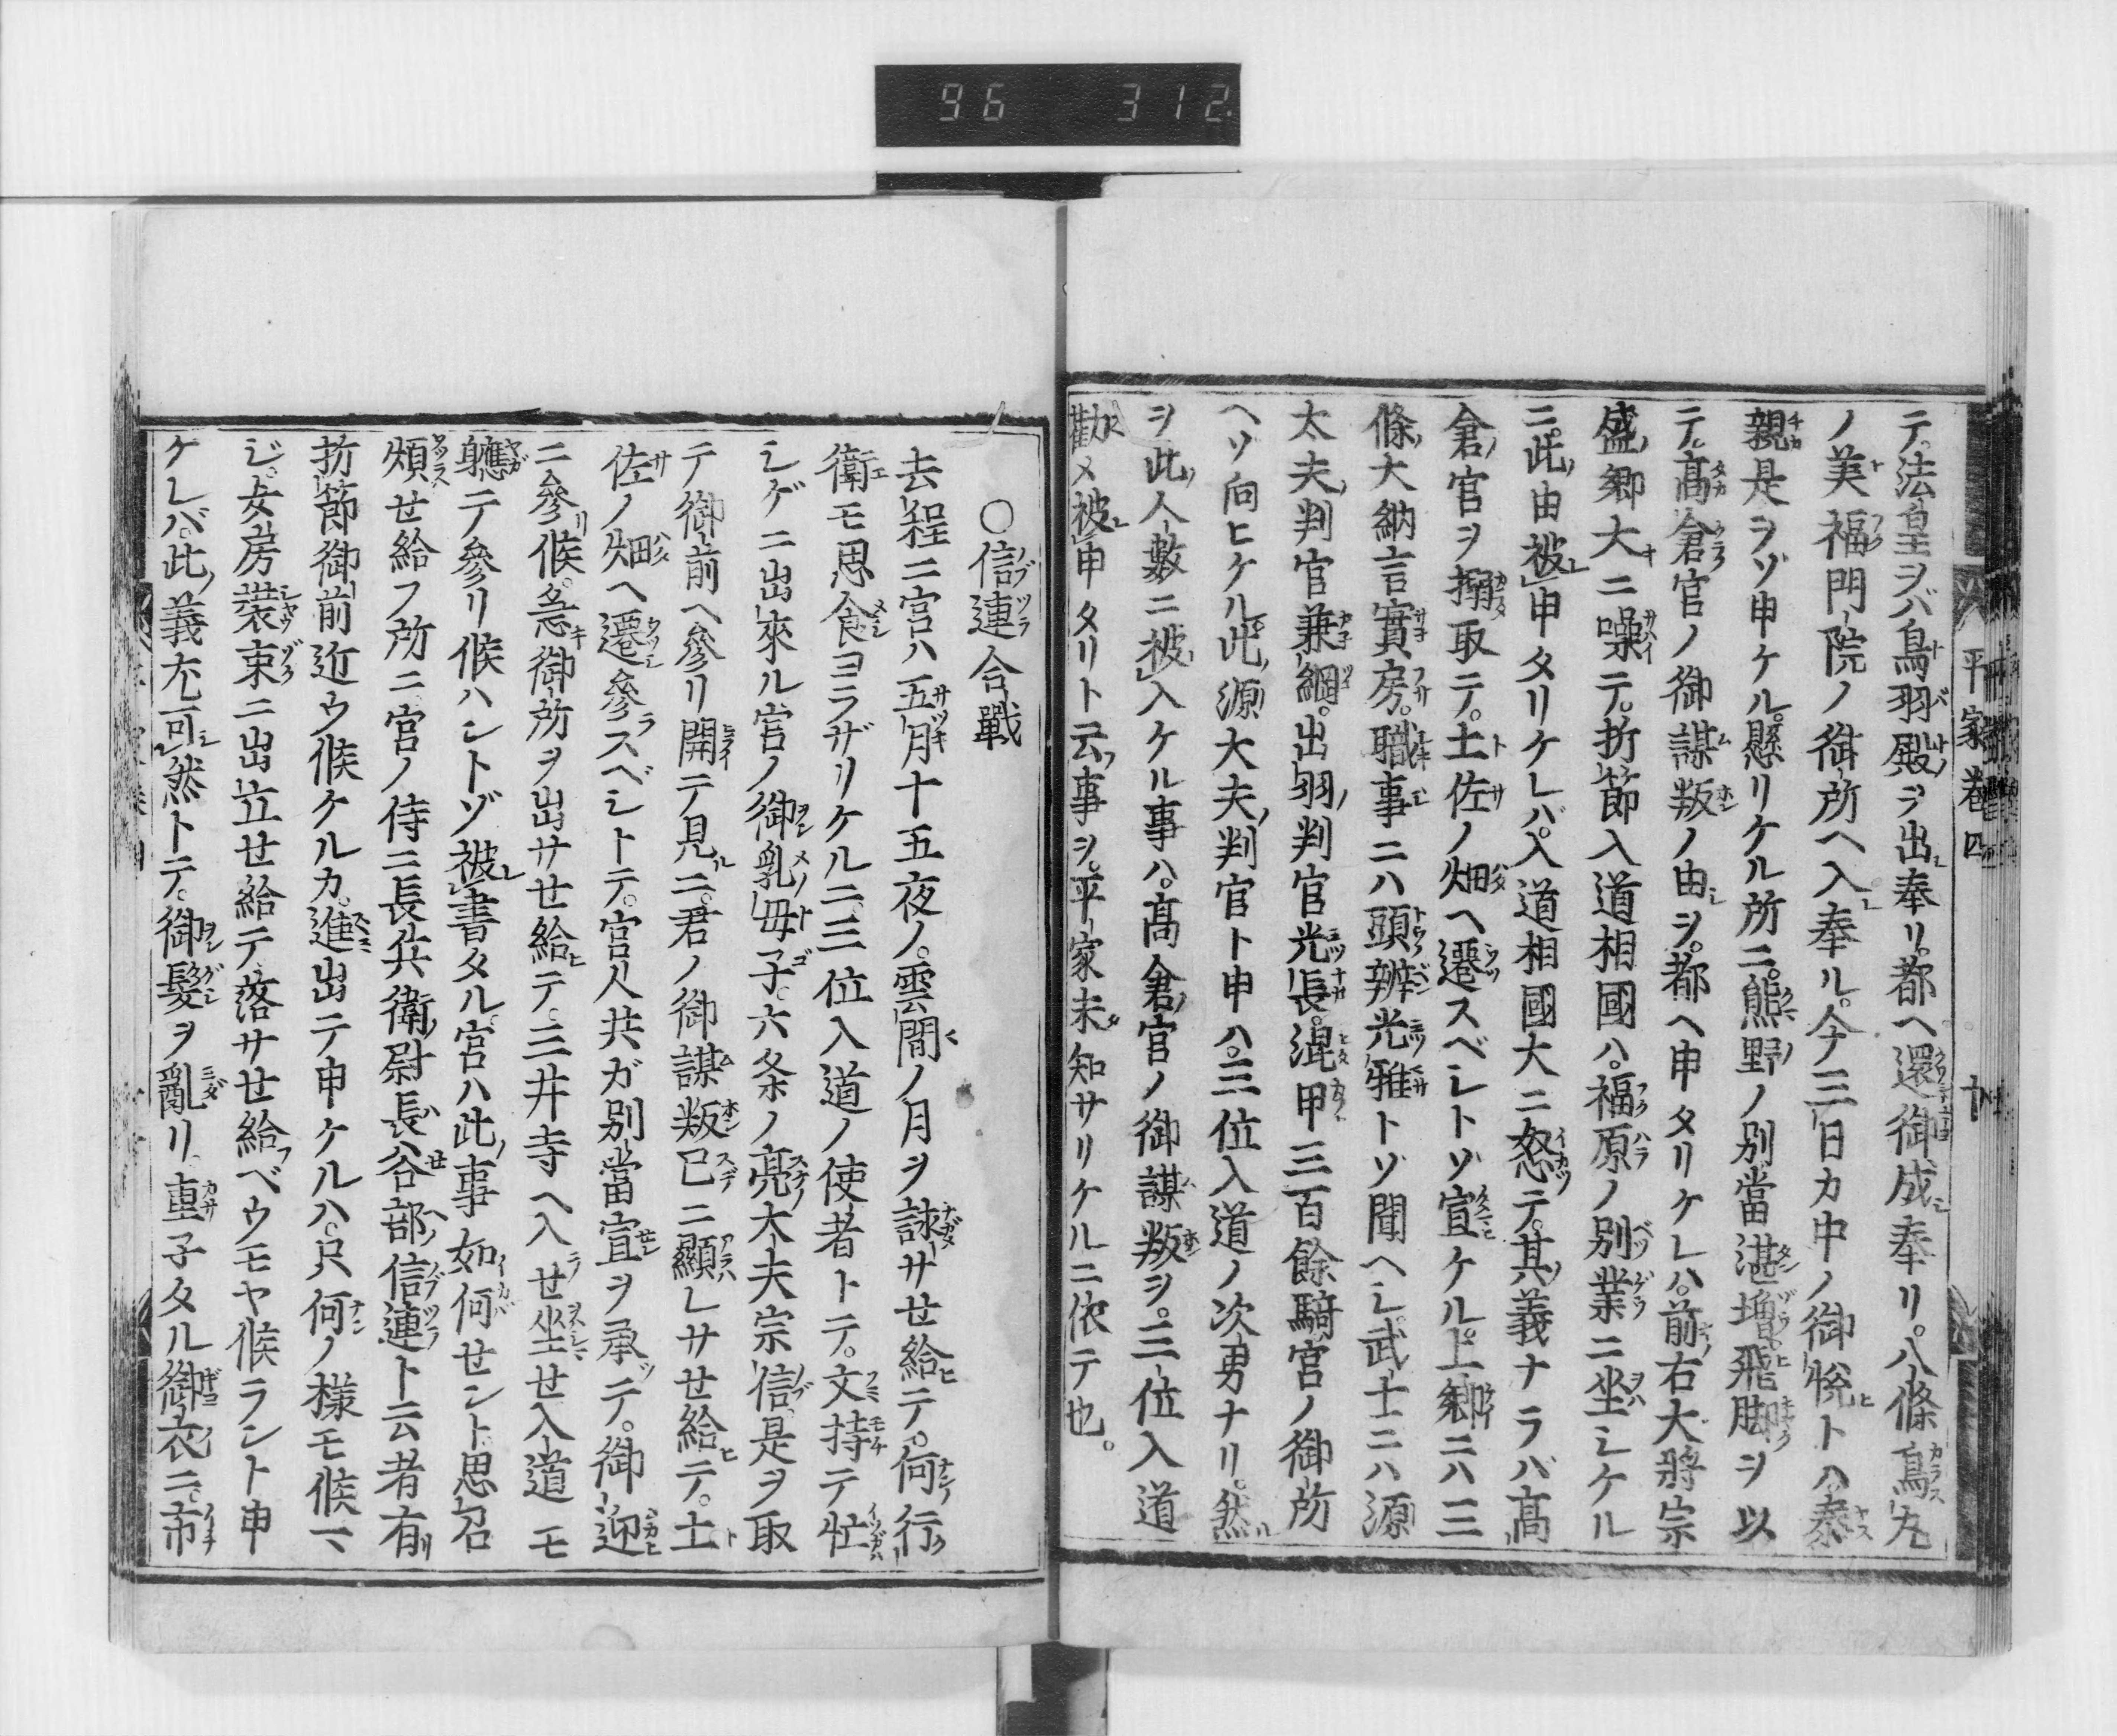 96 312
平家巻四 十
テ。法皇ヲバ鳥羽殿ヲ出奉リ。都ヘ還御成奉リ。八條烏丸
ノ美福門院ノ御所ヘ入奉ル。今三日カ中ノ御悦トハ泰
親是ヲゾ申ケル。懸リケル所ニ。熊野ノ別當湛増飛脚ヲ以
テ。髙倉宮ノ御謀叛ノ由ヲ。都ヘ申タリケレハ。前右大將宗
盛卿大ニ噪テ。折節入道相國ハ。福原ノ別業ニ坐シケル
ニ。此由被申タリケレバ。入道相國大ニ怒テ。其義ナラバ髙
倉宮ヲ搦取テ。土佐ノ畑ヘ遷スベシトソ宣ケル。上卿ニハ三
條大納言實房。職事ニハ頭辨光雅トゾ聞ヘシ。武士ニハ源
太夫判官兼綱。出羽判官光長。混甲三百餘騎宮ノ御所
ヘソ向ヒケル。此源大夫判官ト申ハ。三位入道ノ次男ナリ。然
ヲ此人數ニ被入ケル事ハ。髙倉宮ノ御謀叛ヲ。三位入道
勸メ被申タリト云事ヲ。平家未知サリケルニ依テ也。
○信連合戰
去程ニ宮ハ五月十五夜ノ。雲間ノ月ヲ詠サセ給テ。何行
衛モ思食ヨラザリケルニ。三位入道ノ使者トテ。文持テ忙
シゲニ出來ル。宮ノ御乳母子。六条ノ亮大夫宗信。是ヲ取
テ御前ヘ參リ開テ見ルニ。君ノ御謀叛已ニ顯レサせ給テ。土
佐ノ畑ヘ遷參ラスベシトテ。官人共ガ別當宣ヲ承テ。御迎
ニ參リ候。急キ御所ヲ出サせ給テ。三井寺ヘ入せ坐せ入道モ
軈テ參リ候ハントゾ被書タル。宮ハ此事如何せント思召
煩せ給フ所ニ。宮ノ侍ニ長兵衛尉長谷部信連ト云者有
折節御前近ウ候ケルカ。進出テ申ケルハ。只何ノ様モ候マ
ジ。女房裝束ニ出立せ給テ落サせ給ベウモヤ候ラント申
ケレバ。此義尤可然トテ。御髮ヲ亂リ。重子タル御衣ニ。市